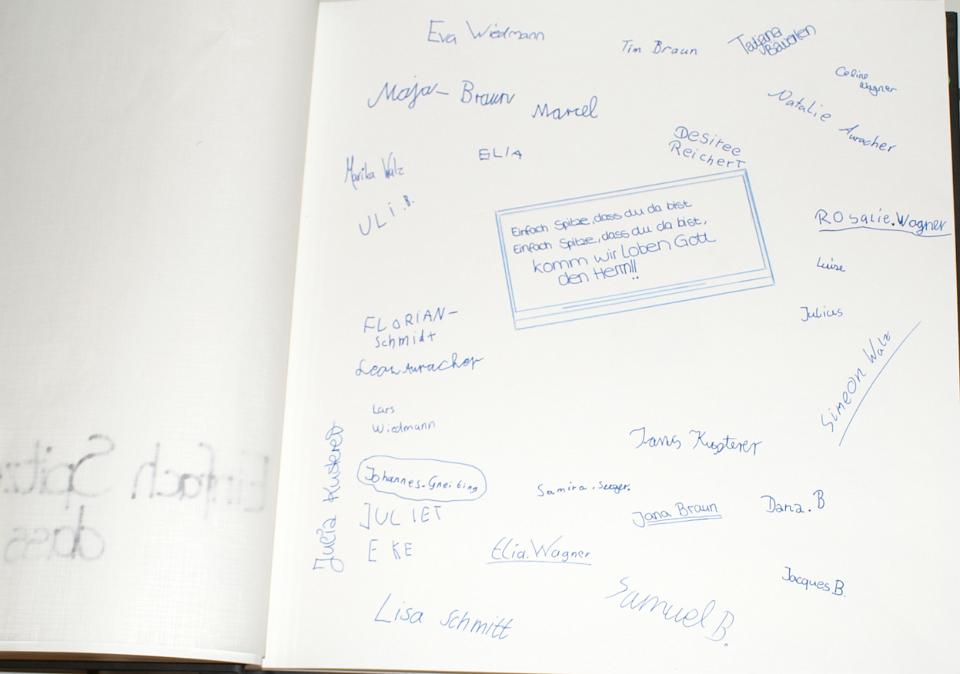 Eva Wiedmann
Tim Braun
Tatjana
Celine
Wagner
Maja Braun
Marcel
Natalie Auracher
Desiree
Reichert
ELIA
Marika Walz
ULI.B.
Einfach Spitze, dass du da bist
Einfach Spitze, dass du da bist,
komm wir loben Gott
den Herrn!!
Rosalie.Wagner
Luise
Julius
FLORIAN-
Schmidt
Leon Auracher
Simeon Walz
Lars
Wiedmann
Janis Kusterer
Julia Kusterer
Johannes.Gneiting
Samira.Seeger.
JULIET
Jana Braun
Dana.B
EKE
Elia.Wagner
Jacques B.
Lisa Schmitt
Samuel B.
Einfach Spitz
dass